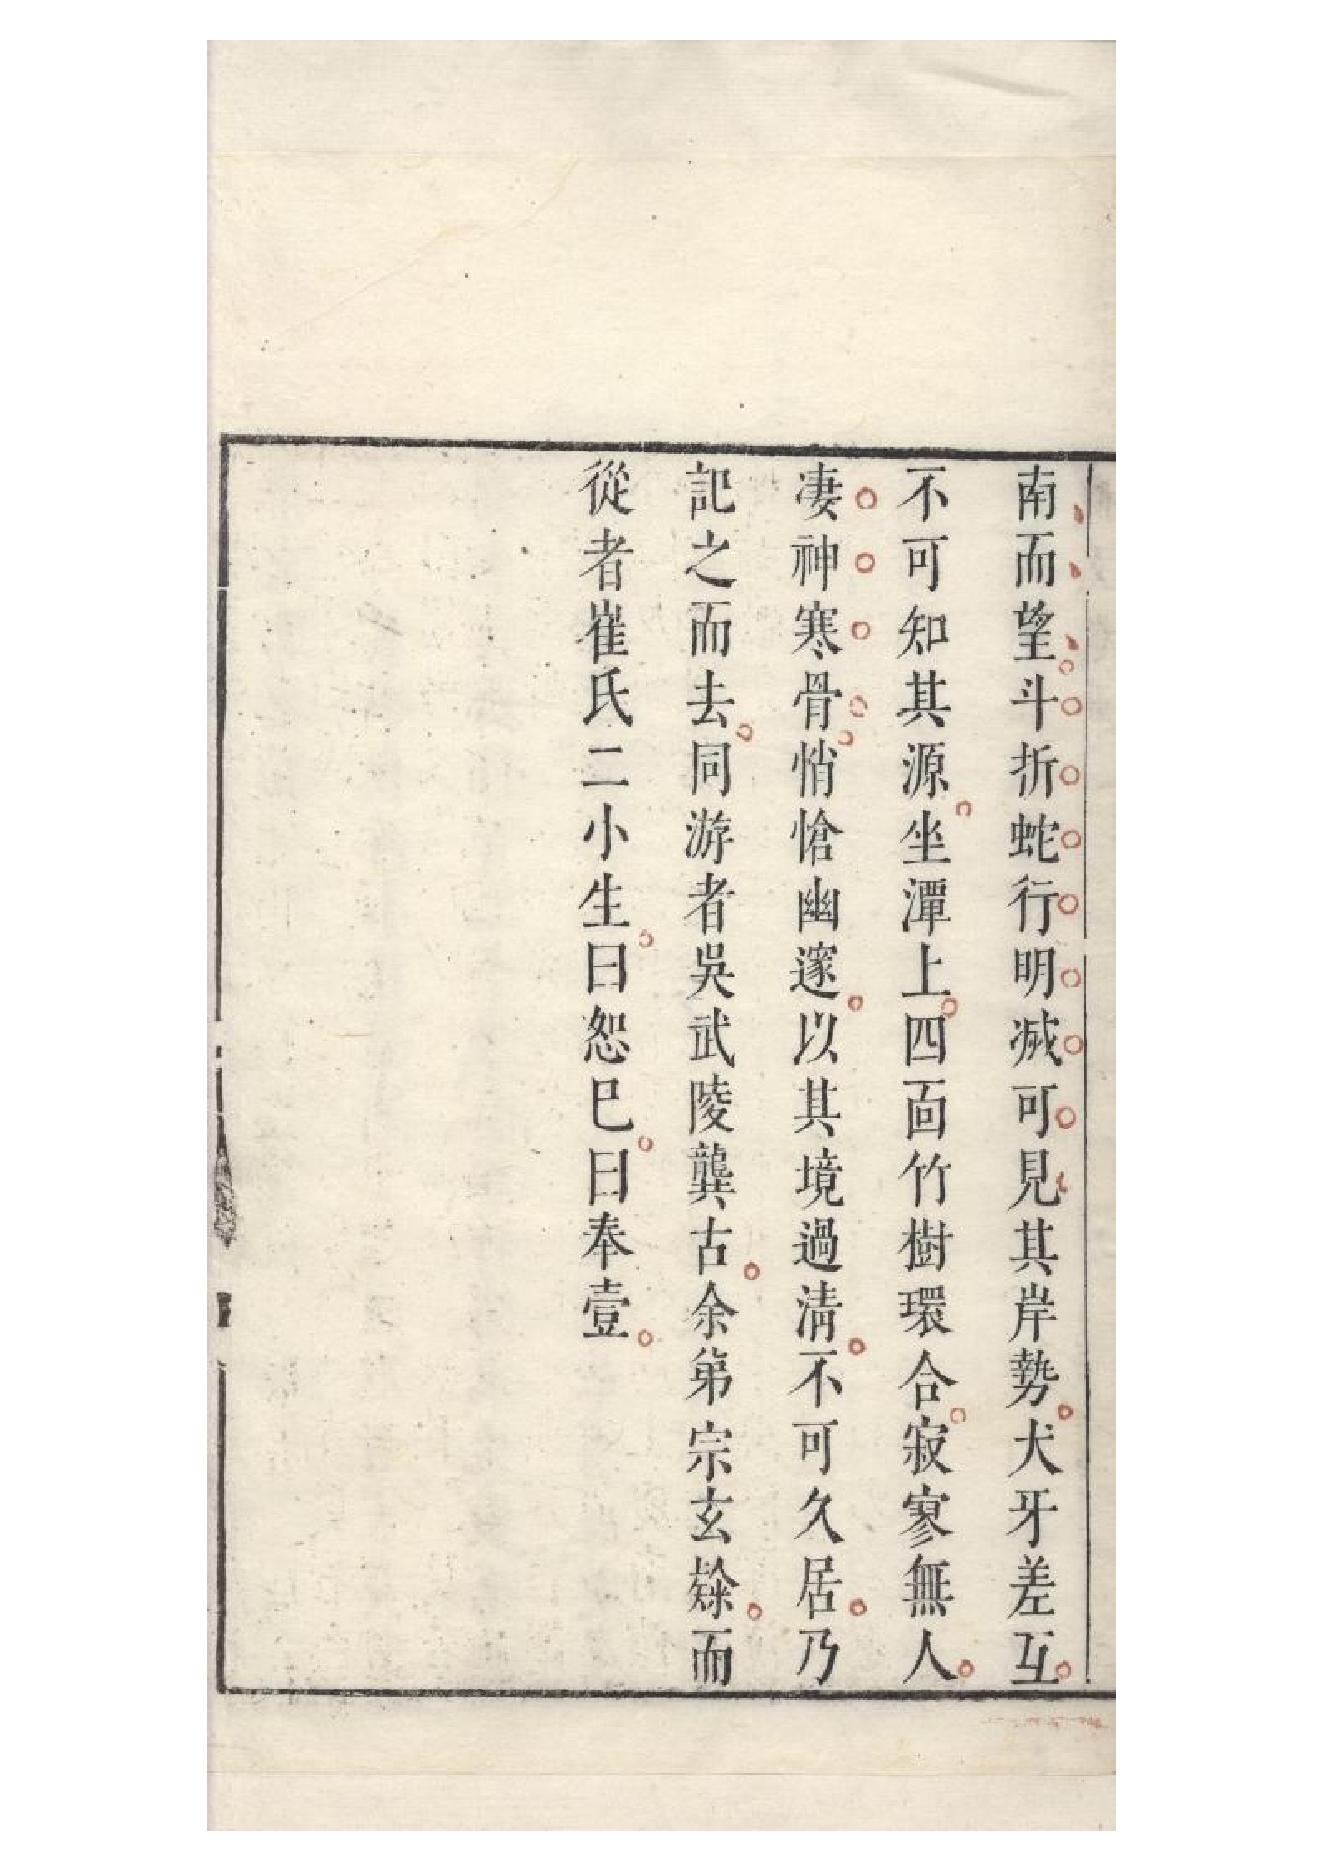 南而望斗折蛇行明滅可見其岸勢犬牙差互
不可知其源坐潭上四面竹樹環合寂寥無人
凄神寒骨悄愴幽邃以其境過清不可久居乃
記之而去同游者吳武陵龔古余弟宗玄隸而
從者崔氏二小生曰恕巳曰奉壹